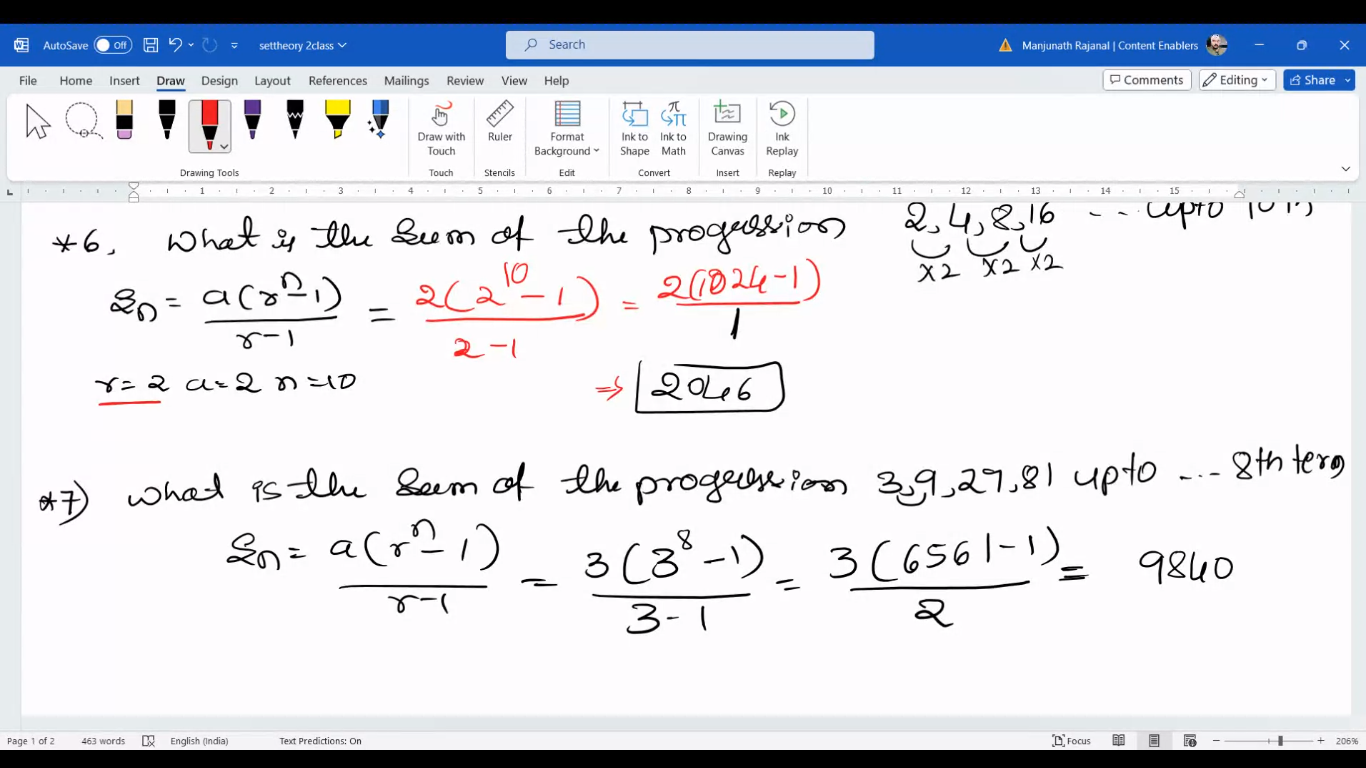 AutoSave Off settheory 2class Search Manjunath Rajanal | Content Enablers
File Home Insert Draw Design Layout References Mailings Review View Help Comments Editing Share
Draw with Touch Ruler Format Background Ink to Shape Ink to Math Drawing Canvas Ink Replay
Drawing Tools Touch Stencils Edit Convert Insert Replay
1 2 3 4 5 6 7 8 9 10 11 12 13 14 15
*6, What is the Sum of the progression 2,4,8,16 ... upto 10th
×2 ×2 ×2
Sn = a(r^n-1)/r-1 = 2(2^10-1)/2-1 = 2(1024-1)/1
r=2 a=2 n=10 ⇒ 2046
*7) What is the Sum of the progression 3,9,27,81 upto ... 8th term
Sn = a(r^n-1)/r-1 = 3(3^8-1)/3-1 = 3(6561-1)/2 = 9840
Page 1 of 2 463 words English (India) Text Predictions: On Focus 206%